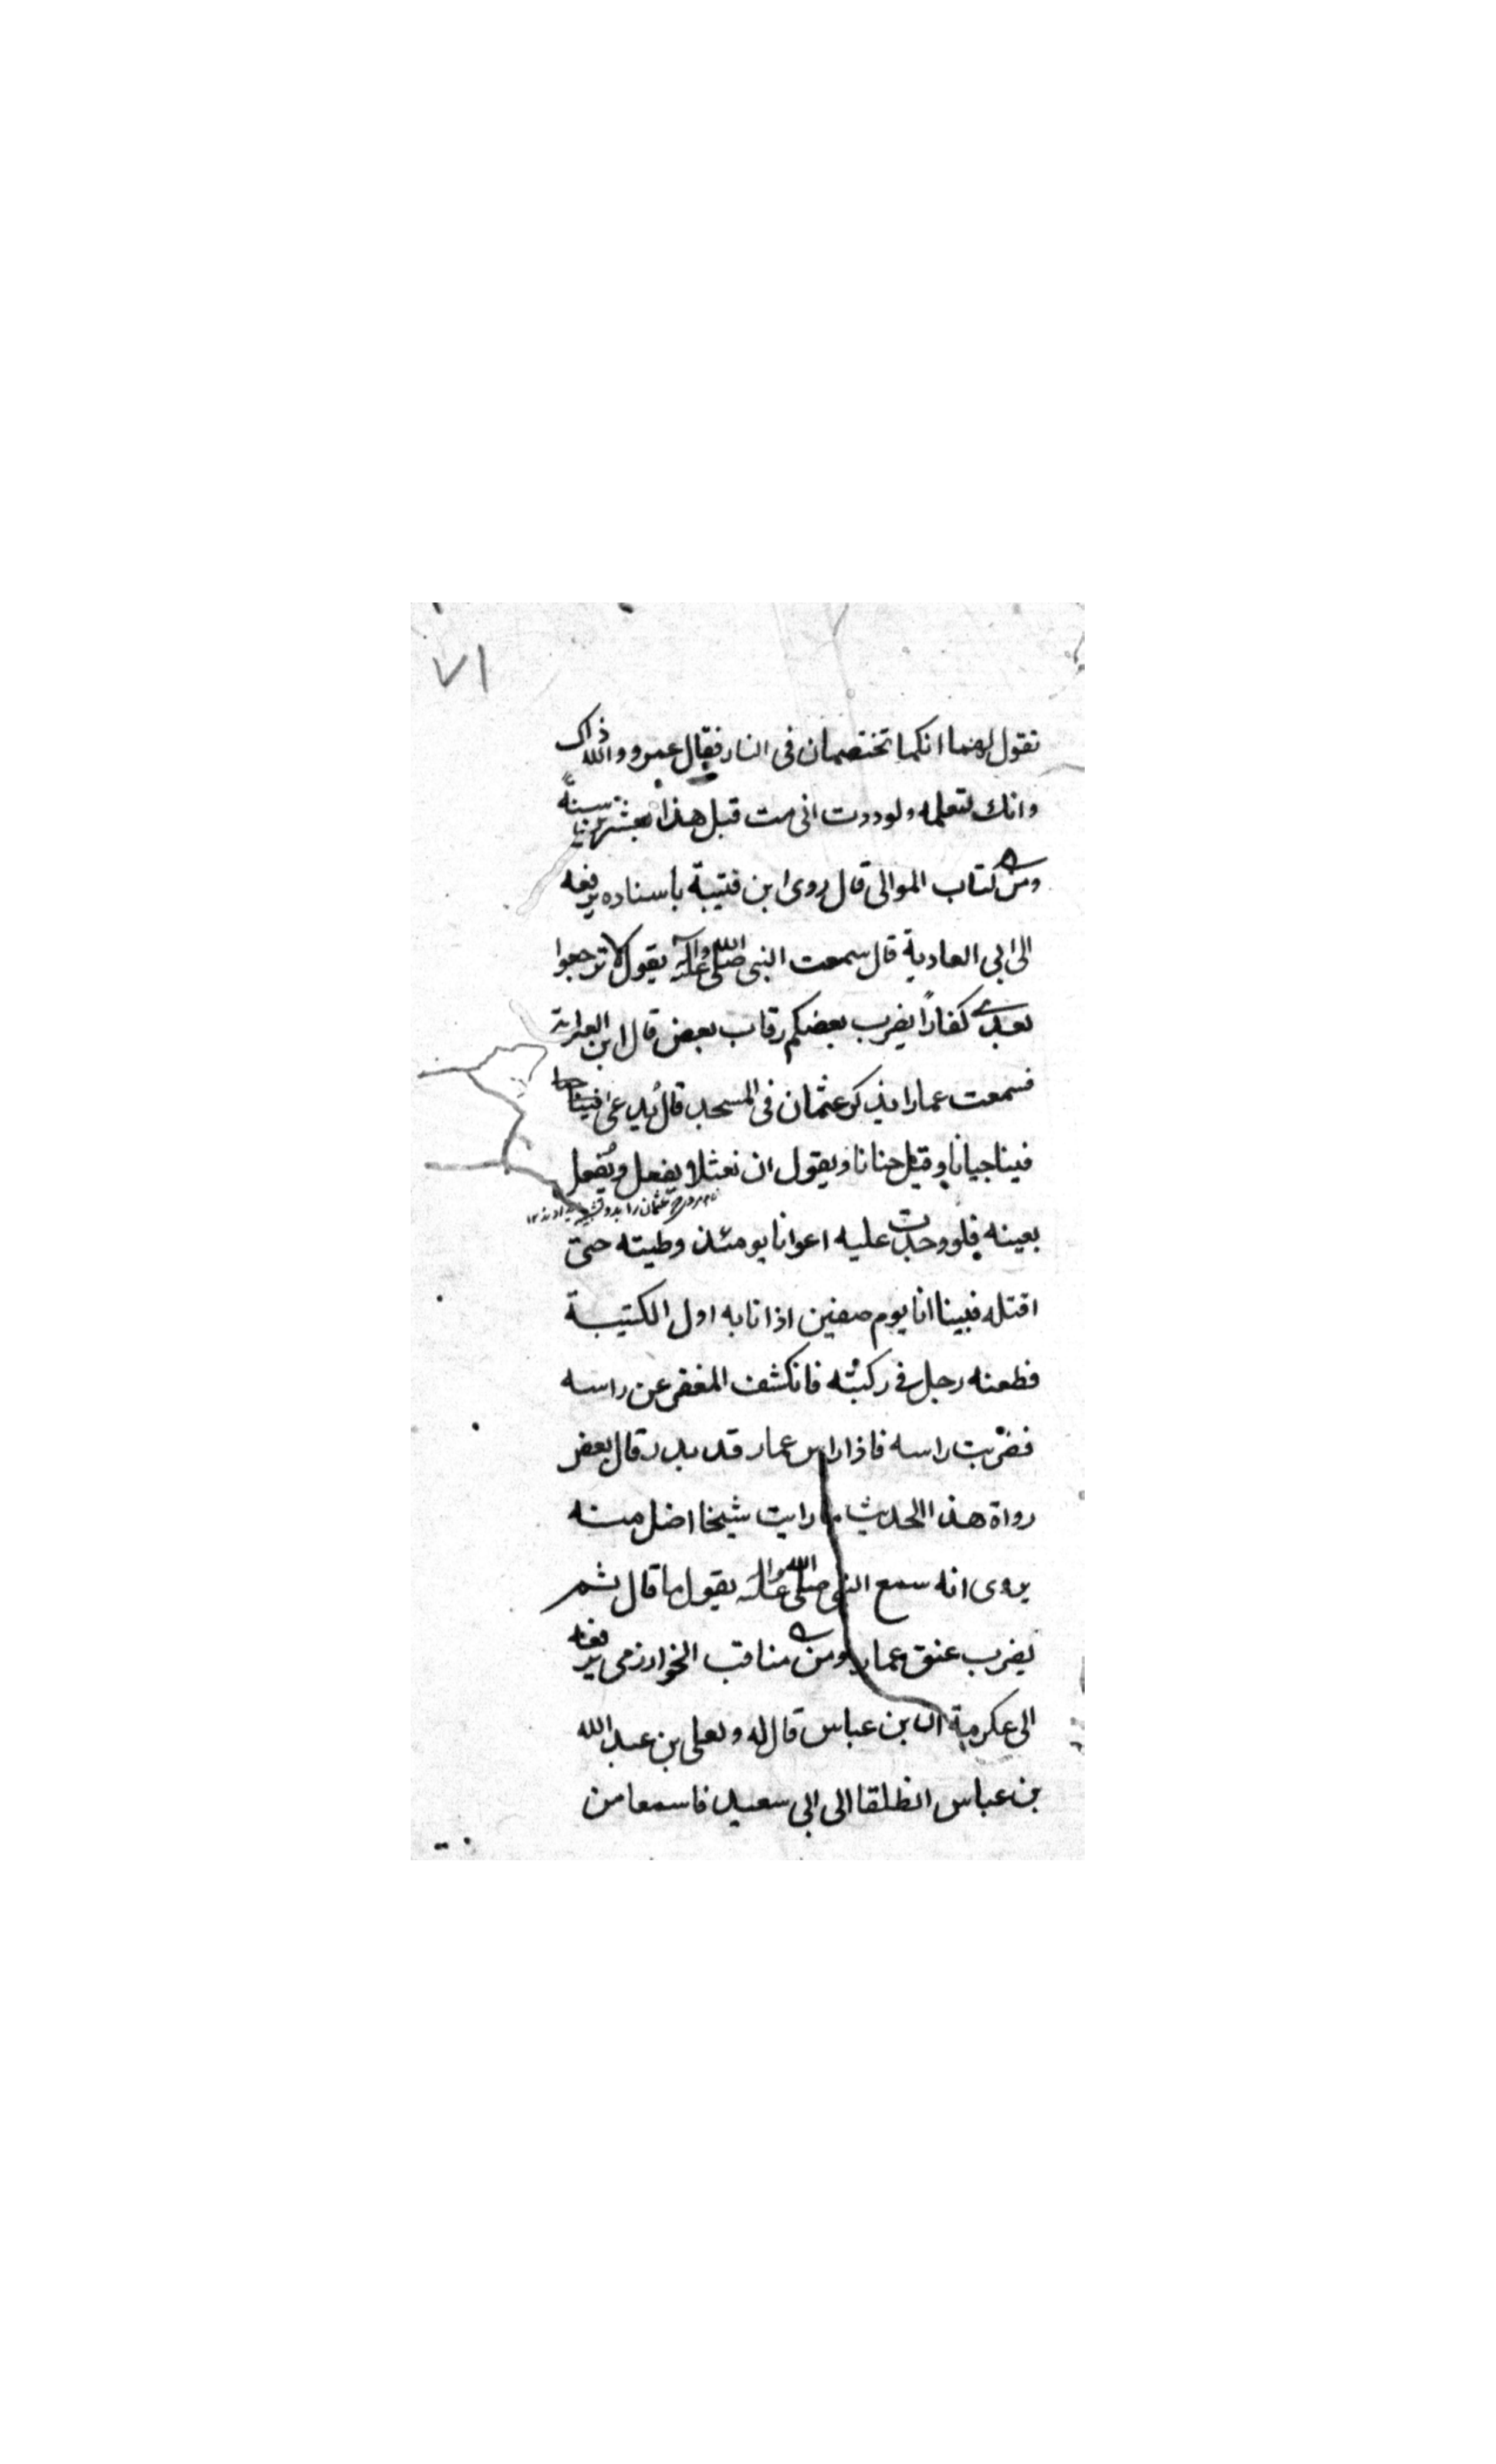 ٧١
تقول لهما انكما تختصمان فى النار فقال عمرو والله ذاك
وانك لتعلمه ولوددت انى مت قبل هذا بعشرين سنةً
ومن كتاب الموالى قال روى ابن قتيبة باسناده يرفعه
الى ابى العادية قال سمعت النبى صلى الله عليه وآله يقول لا ترجعوا
بعدى كفاراً يضرب بعضكم رقاب بعض قال ابن
فسمعت عمارا يذكر عثمان فى المسجد قال يدعى فينا
فينا جيانا وقيل حنانا ويقول ان نعثلا يفعل ويفعل
بعينه فلو وجدت عليه اعوانا يومئذ وطيته حتى
اقتله فبينا انا يوم صفين اذ انا به اول الكتيبة
فطعنه رجل فى ركبته فانكشف المغفر عن راسه
فضربت راسه فاذا راس عمار قد بدر قال بعض
رواة هذا الحديث ما رايت شيخا اضل منه
يروى انه سمع النبى صلى الله عليه وآله يقول ما قال ثم
يضرب عنق عمار ومن مناقب الخوارزمى يرفعه
الى عكرمة ان ابن عباس قال له ولعلى بن عبدالله
بن عباس انطلقا الى ابى سعيد فاسمعا من